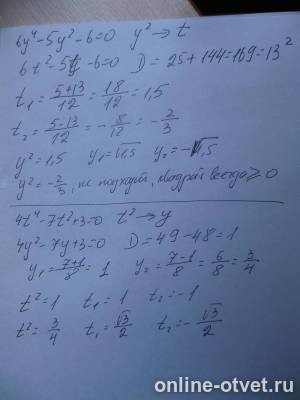 6y⁴-5y²-6=0 y²→t
6t²-5t-6=0 D=25+144=169=13²
t₁=(5+13)/12=18/12=1,5
t₂=(5-13)/12=-8/12=-2/3
y²=1,5 y₁=√1,5 y₂=-√1,5
y²=-2/3, не подходит, квадрат всегда ≥0
4t⁴-7t²+3=0 t²→y
4y²-7y+3=0 D=49-48=1
y₁=(7+1)/8=1 y₂=(7-1)/8=6/8=3/4
t²=1 t₁=1 t₂=-1
t²=3/4 t₁=√3/2 t₂=-√3/2
online-otvet.ru